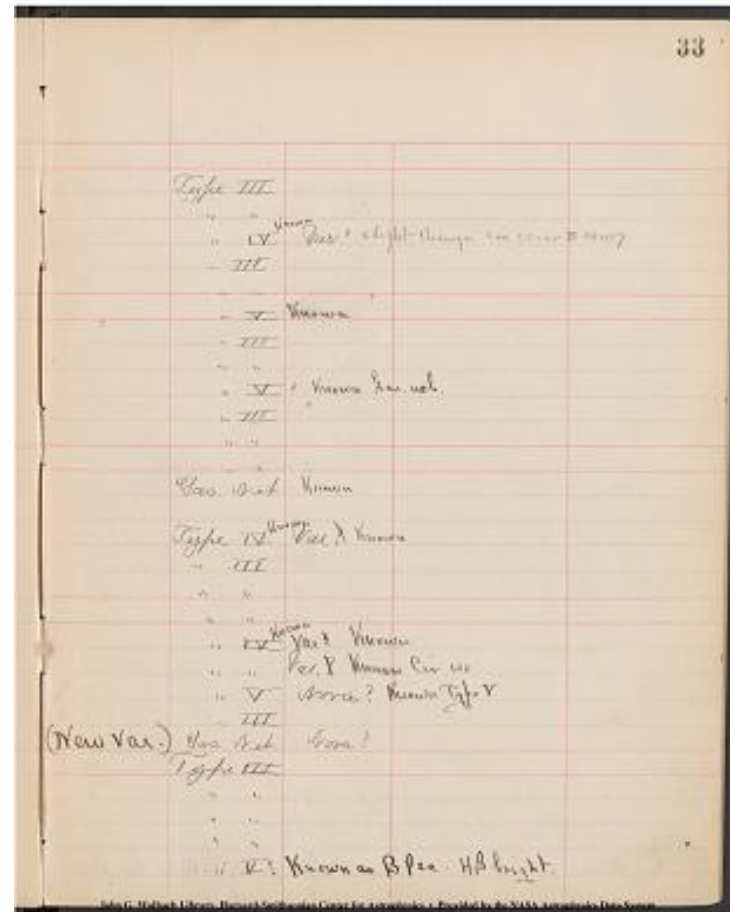 33
Type III
" "
" IV Known Var.?
" III
" V Known
" III
" "
" V Known Gas. neb.
" III
" "
Gas. Neb Known
Type IV Known Var.? Known
" III
" "
" "
" IV Known Var? Known
" " Var.? Known
" V Nova? Known Type V
" III
(New Var.) Gas Neb Nova?
Type III
" "
" "
" "
" V? Known as B Pec. Hβ bright.
John G. Wolbach Library, Harvard-Smithsonian Center for Astrophysics • Provided by the NASA Astrophysics Data System